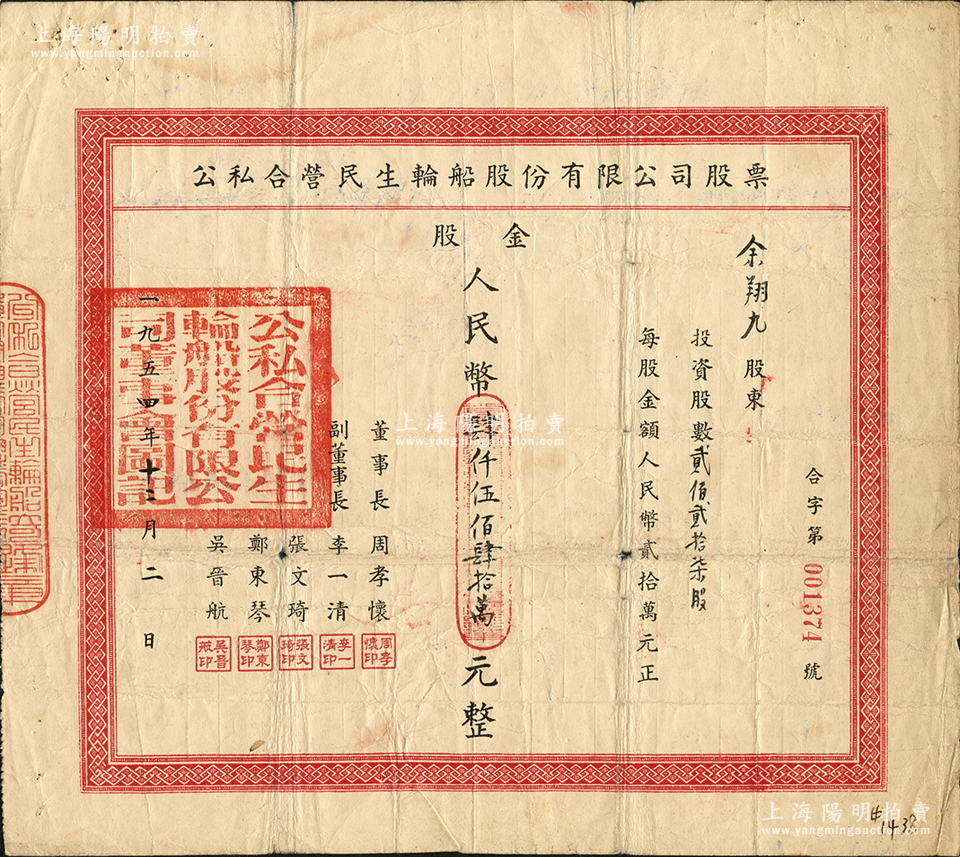 上海陽明拍賣
www.yangmingauction.com
上海陽明拍賣
www.yangmingauction.com
公私合營民生輪船股份有限公司股票
合字第 001374 號
余翔九 股東
投資股數貳佰貳拾柒股
每股金額人民幣貳拾萬元正
股金
人民幣肆仟伍佰肆拾萬元整
董事長 周孝懷
副董事長 李一清
張文琦
鄭東琴
吳晉航
周孝懷印
李一清印
張文琦印
鄭東琴印
吳晉航印
一九五四年十二月二日
公私合營民生
輪船股份有限公
司董事會圖記
上海陽明拍賣
www.yangmingauction.com
上海陽明拍賣
www.yangmingauction.com